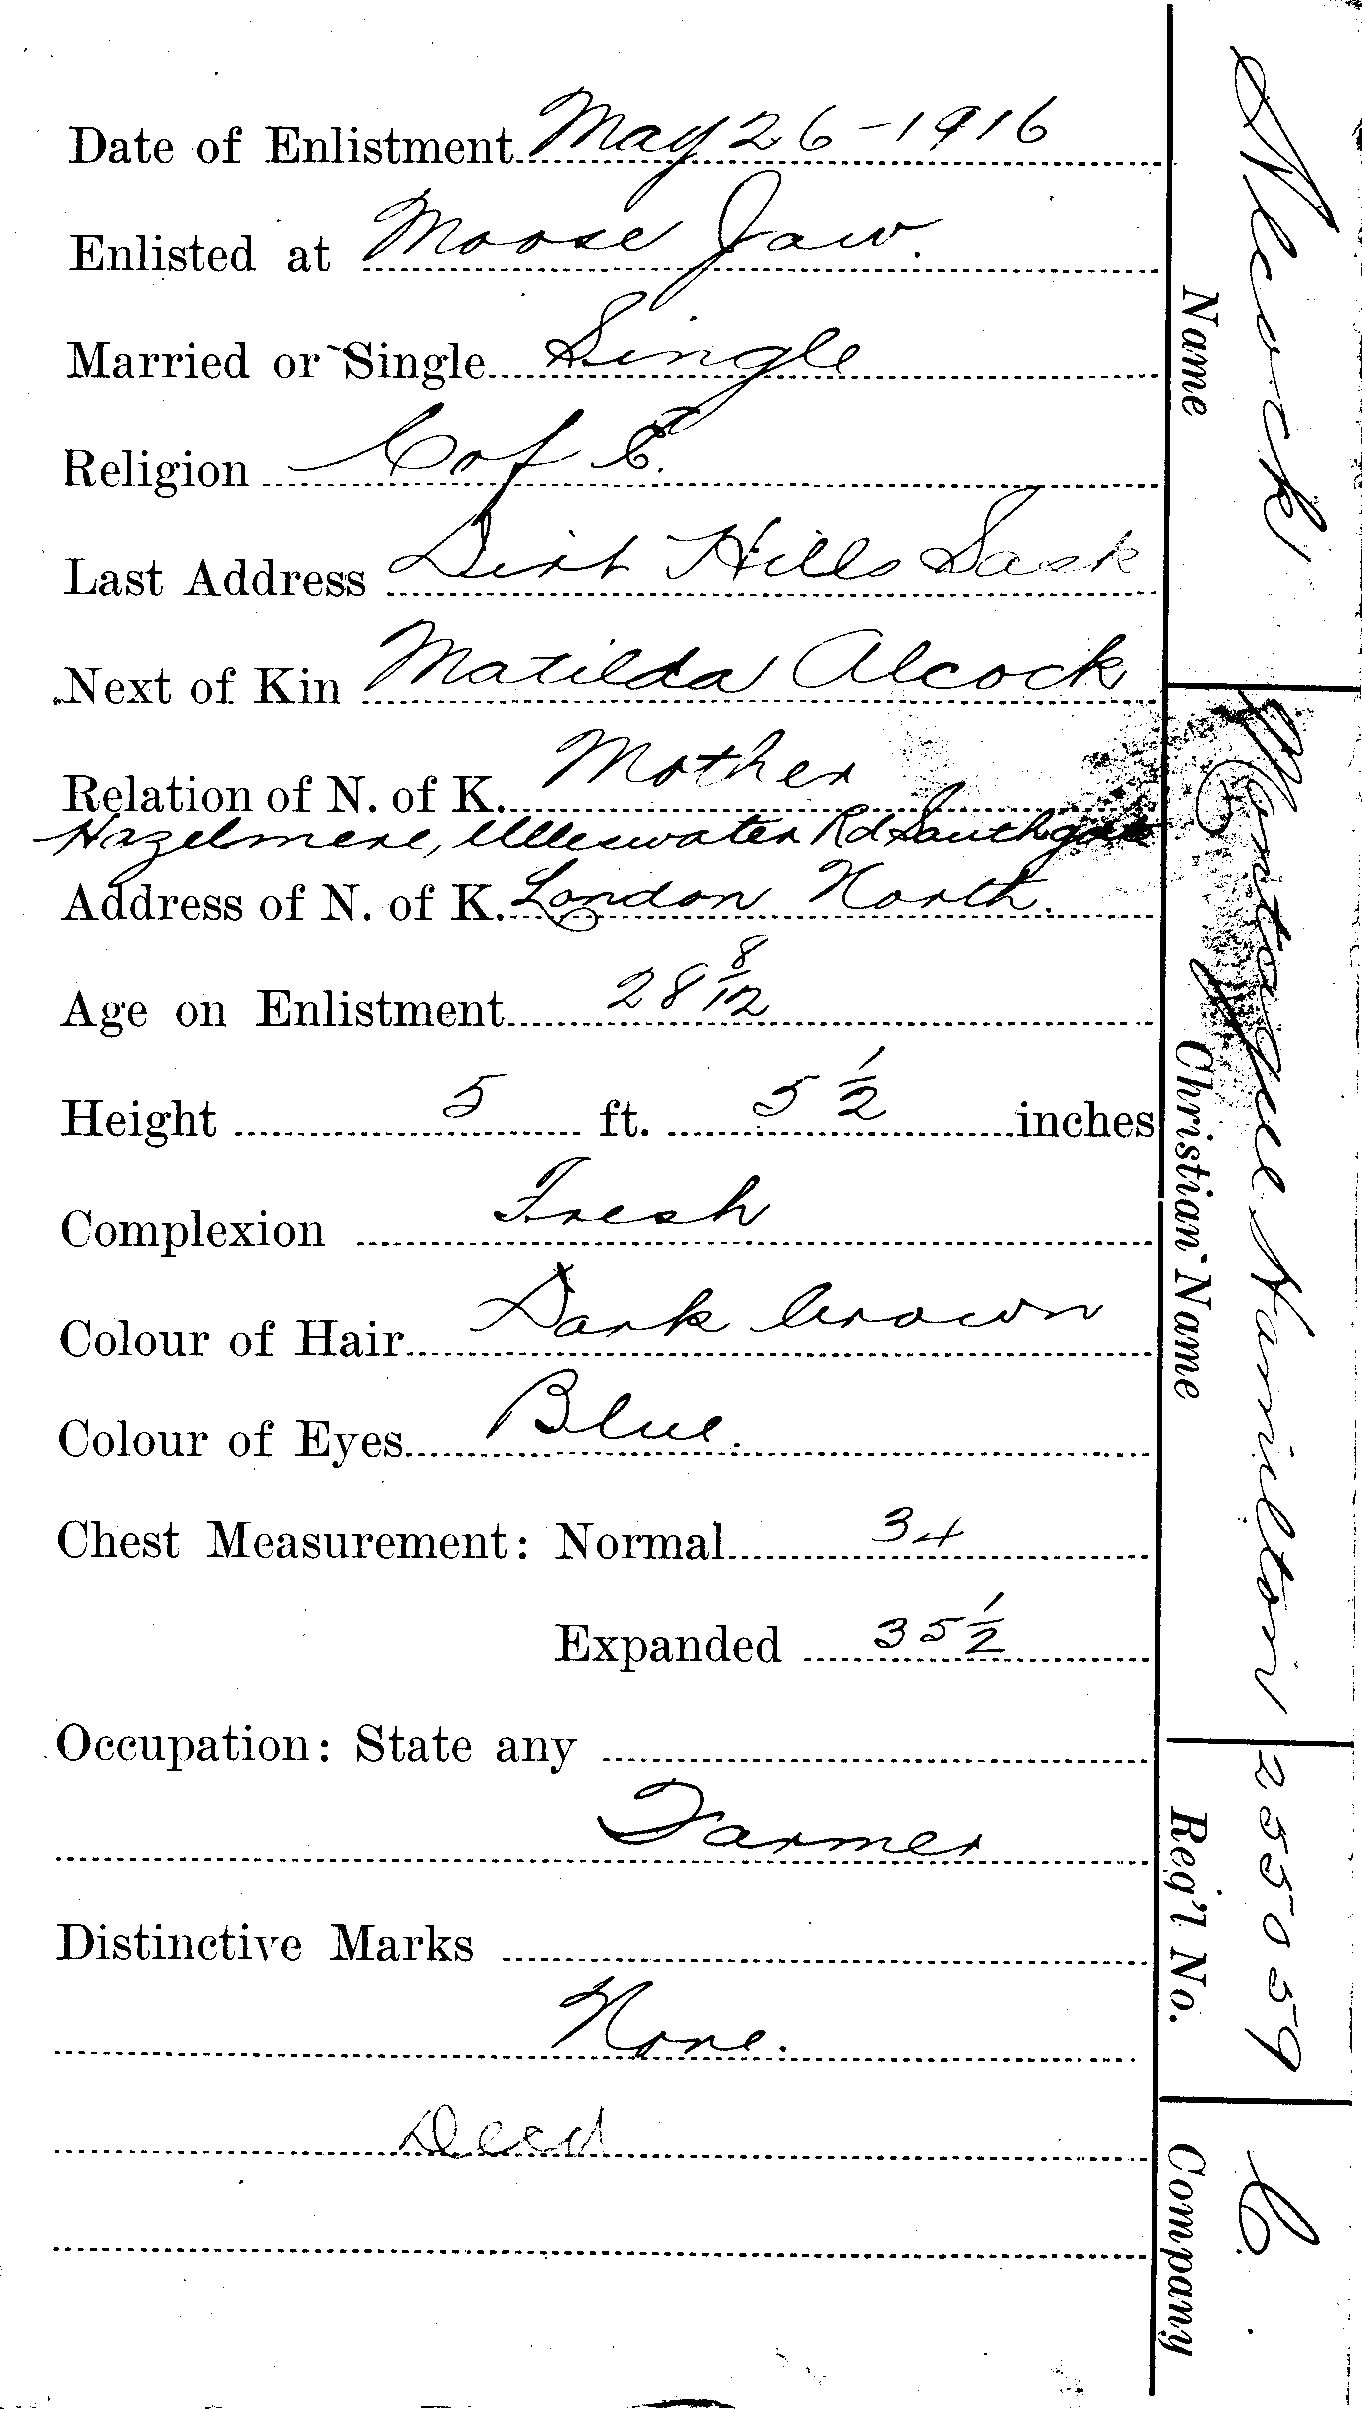 Date of Enlistment May 26-1916
Enlisted at Moose Jaw.
Married or Single Single
Religion C of E.
Last Address Dirt Hills Sask
Next of Kin Matilda Alcock
Relation of N. of K. Mother
Hazelmere, Ulleswater Rd Southgate
Address of N. of K. London North.
Age on Enlistment 28 8/12
Height 5 ft. 5 1/2 inches
Complexion Fresh
Colour of Hair Dark brown
Colour of Eyes Blue.
Chest Measurement: Normal 34
Expanded 35 1/2
Occupation: State any
Farmer
Distinctive Marks
None.
Deed
Alcock Montague Hamilton 255059 C.
Name Christian Name Reg'l No. Company